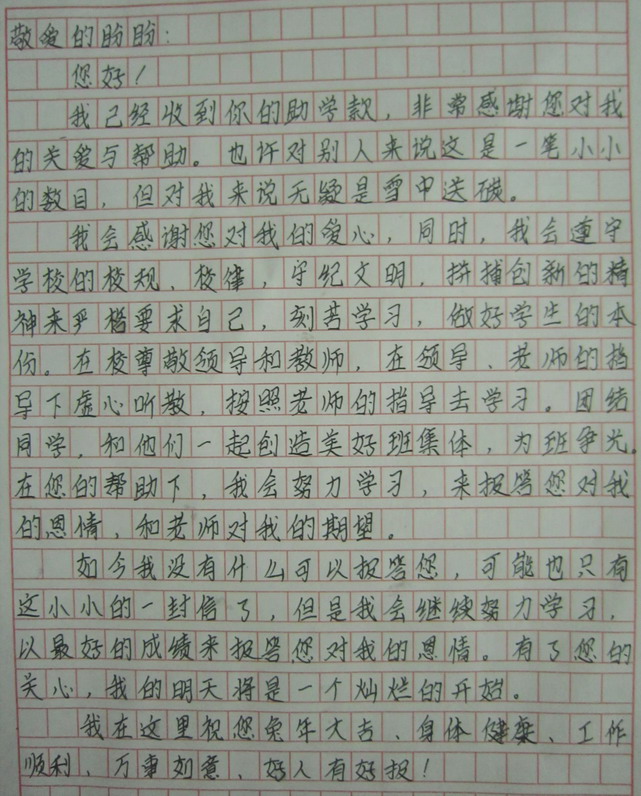 敬爱的盼盼：
您好！
我已经收到你的助学款，非常感谢您对我
的关爱与帮助。也许对别人来说这是一笔小小
的数目，但对我来说无疑是雪中送碳。
我会感谢您对我的爱心，同时，我会遵守
学校的校规、校律，守纪文明，拼捕创新的精
神来严格要求自己，刻苦学习，做好学生的本
份。在校尊敬领导和教师，在领导、老师的指
导下虚心听教，按照老师的指导去学习。团结
同学，和他们一起创造美好班集体，为班争光。
在您的帮助下，我会努力学习，来报答您对我
的恩情，和老师对我的期望。
如今我没有什么可以报答您，可能也只有
这小小的一封信了，但是我会继续努力学习，
以最好的成绩来报答您对我的恩情。有了您的
关心，我的明天将是一个灿烂的开始。
我在这里祝您兔年大吉、身体健康、工作
顺利、万事如意、好人有好报！